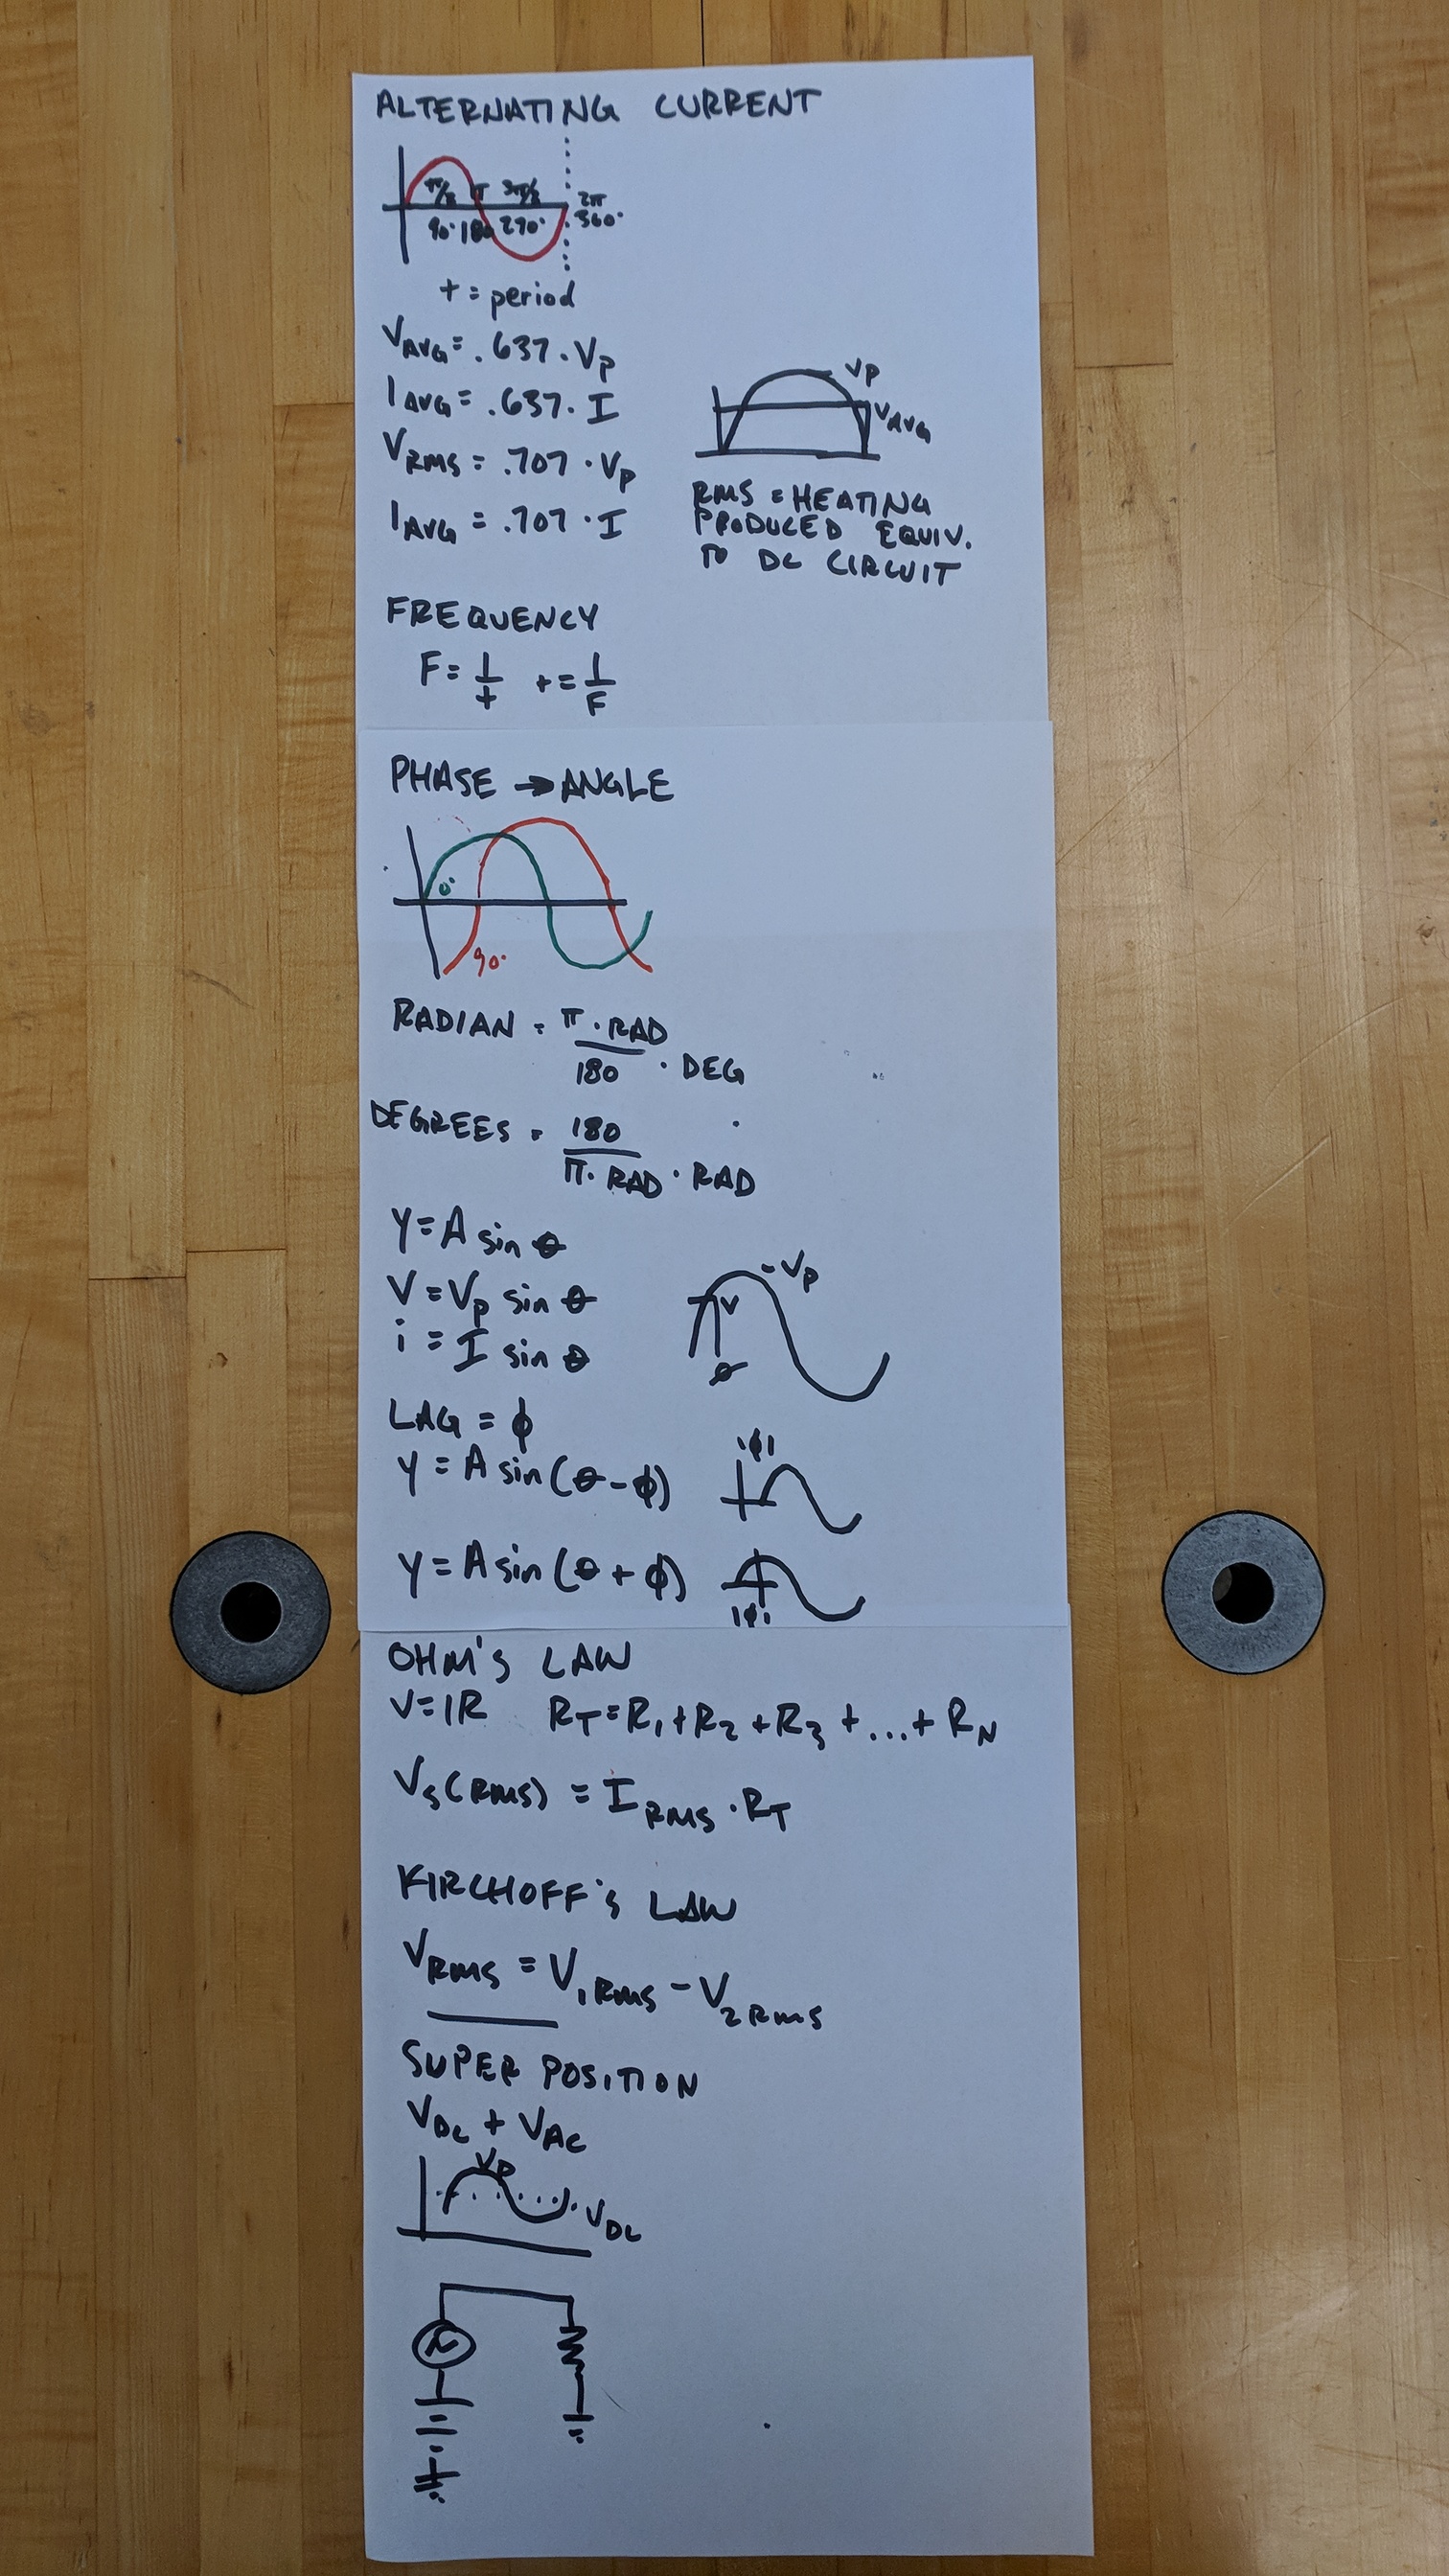 ALTERNATING CURRENT
π/2 π 3π/2 2π
90° 180 270° 360°
t = period
VAVG = .637 · Vp
IAVG = .637 · I
VRMS = .707 · Vp
IAVG = .707 · I
Vp
VAVG
RMS = HEATING
PRODUCED EQUIV.
TO DC CIRCUIT
FREQUENCY
F = 1/t t = 1/F
PHASE → ANGLE
0°
90°
RADIAN = π · RAD / 180 · DEG
DEGREES = 180 / π · RAD · RAD
y = A sin θ
V = Vp sin θ
i = I sin θ
Vp
V
θ
LAG = ϕ
y = A sin (θ - ϕ)
ϕ
y = A sin (θ + ϕ)
ϕ
OHM'S LAW
V = IR RT = R1 + R2 + R3 + ... + RN
VS(RMS) = IRMS · RT
KIRCHOFF'S LAW
VRMS = V1RMS - V2RMS
SUPER POSITION
VDC + VAC
Vp
VDC